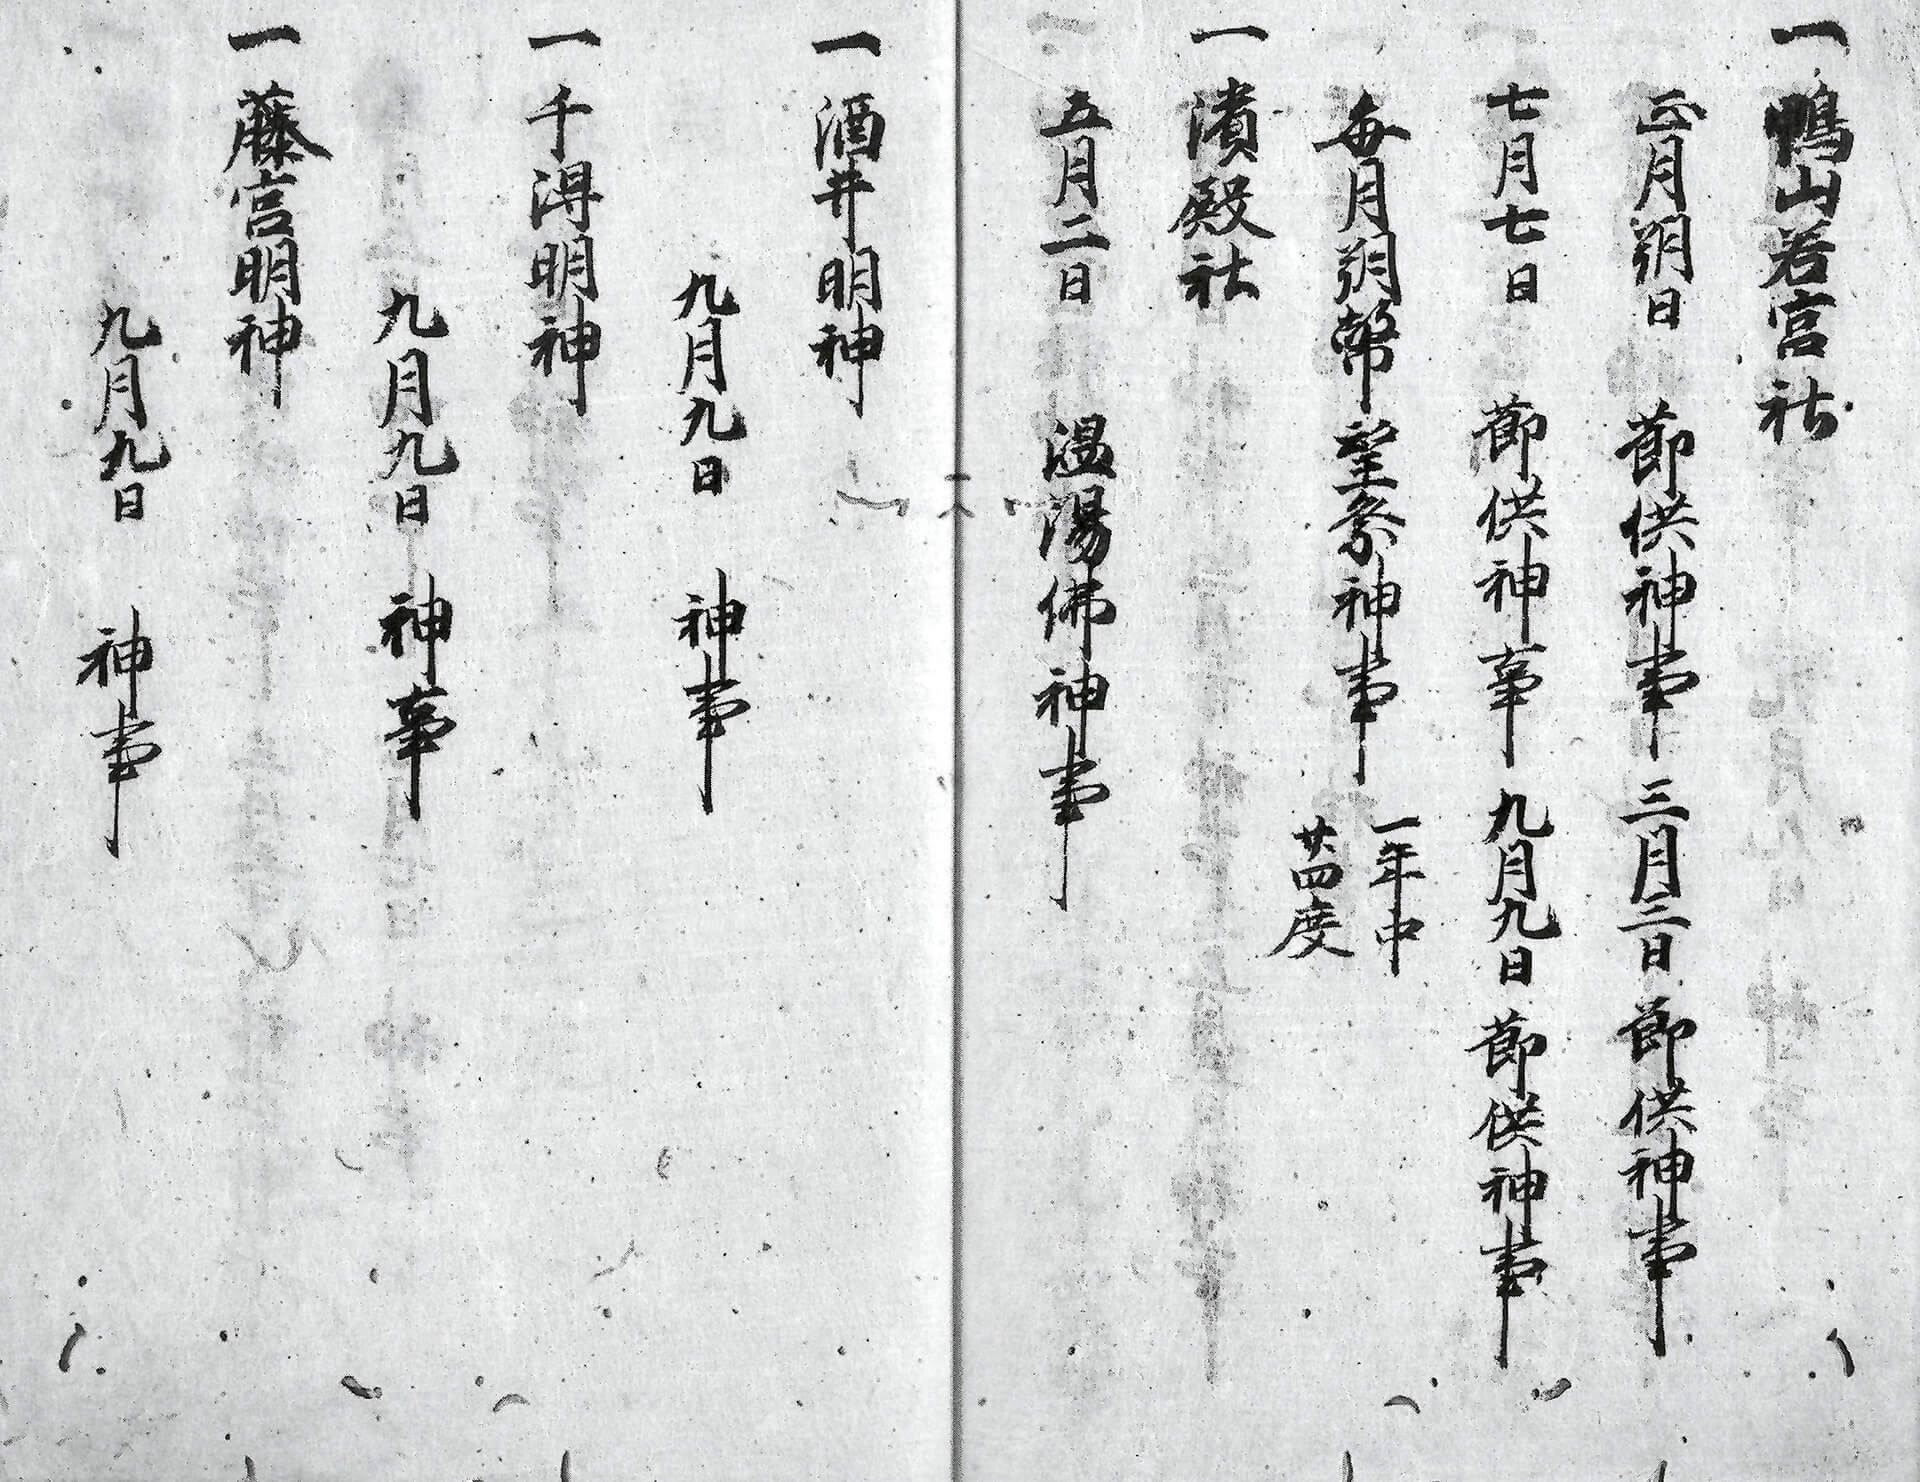 一鴨山若宮社
正月朔日 節供神事 三月三日 節供神事
七月七日 節供神事 九月九日 節供神事
毎月朔幣望祭神事 一年中
廿四度
一濱殿社
五月二日 温湯佛神事
一酒井明神
九月九日 神事
一千淂明神
九月九日 神事
一藤宮明神
九月九日 神事